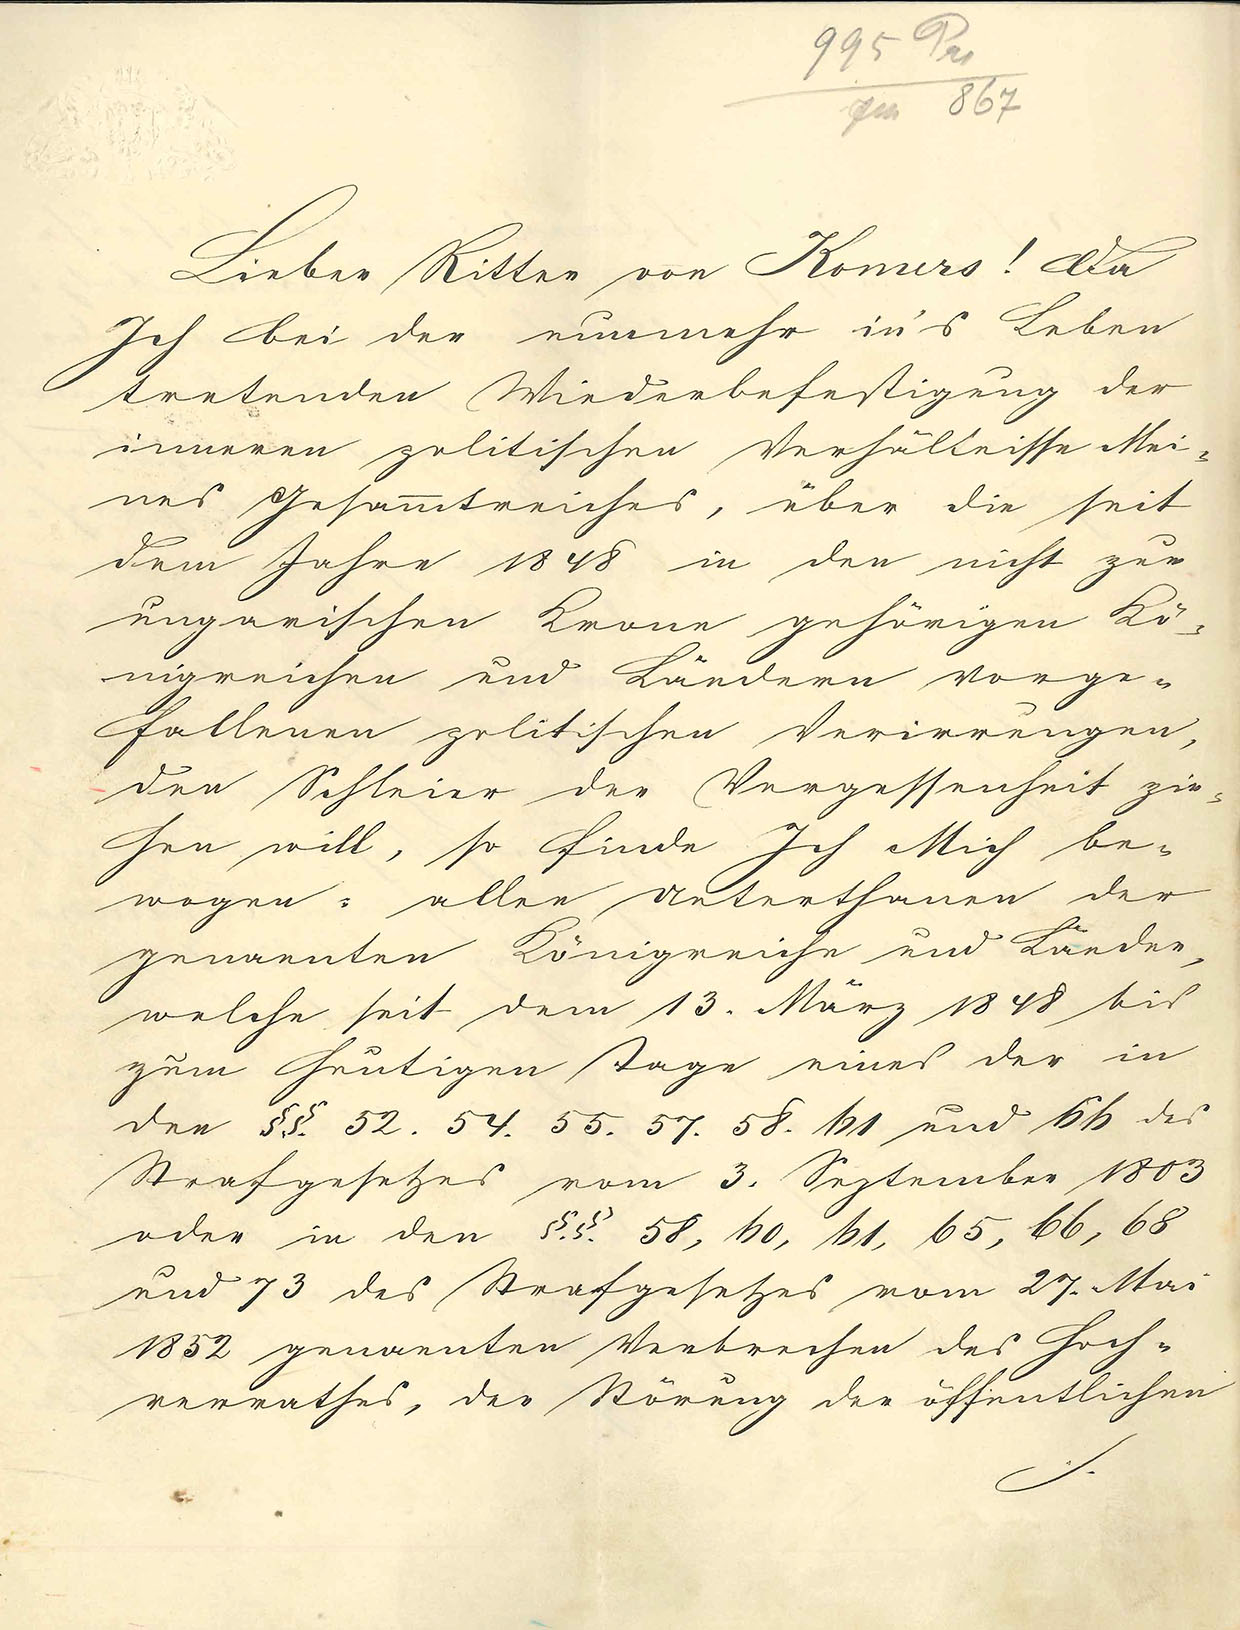 995 Pr
867
Lieber Ritter von Komers! Da
Ich bei der nunmehr in's Leben
tretenden Wiederbefestigung der
inneren politischen Verhältnisse Mei-
nes Gesam̅treiches, über die seit
dem Jahre 1848 in den nicht zur
ungarischen Krone gehörigen Kö-
nigreichen und Ländern vorge-
fallenen politischen Verirrungen,
den Schleier der Vergessenheit zie-
hen will, so finde Ich Mich be-
wogen: allen Unterthanen der
genannten Königreiche und Länder,
welche seit dem 13. März 1848 bis
zum heutigen Tage eines der in
den §§. 52. 54. 55. 57. 58. 61 und 66 des
Strafgesetzes vom 3. September 1803
oder in den §.§. 58, 60, 61, 65, 66, 68
und 73 des Strafgesetzes vom 27. Mai
1852 genannten Verbrechen des Hoch-
verrathes, der Störung der öffentlichen
./.